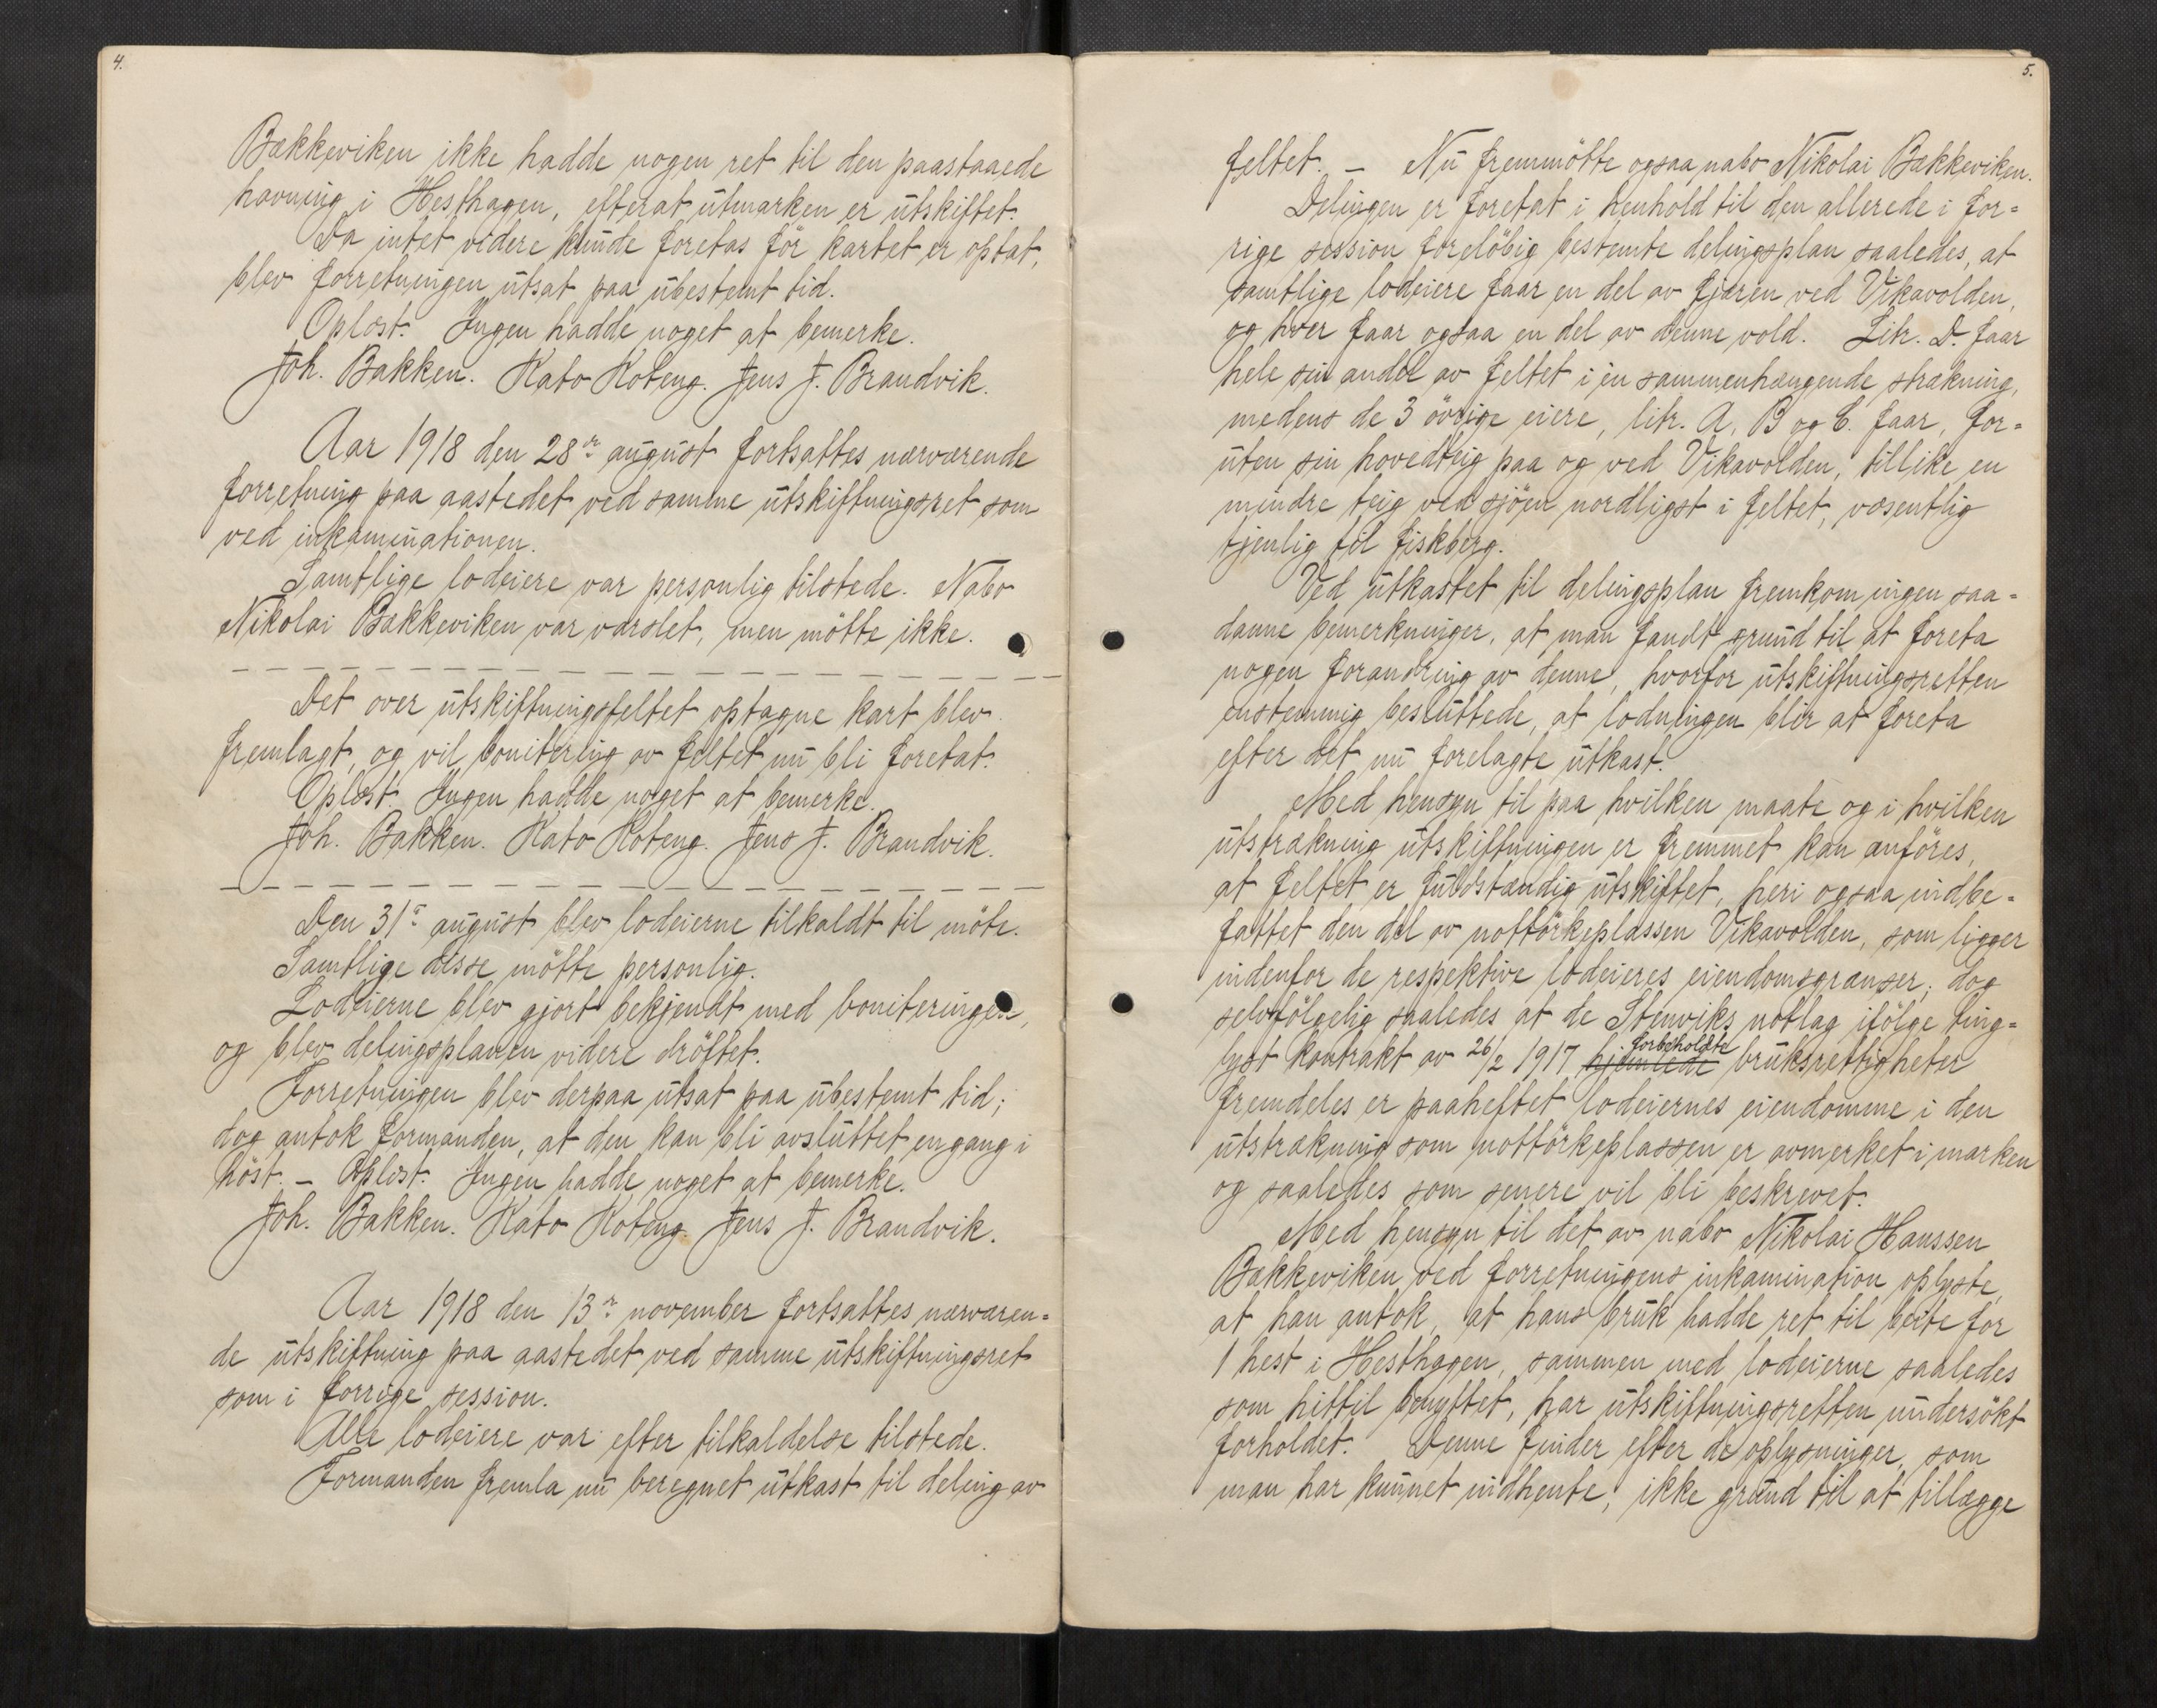 4.
Bækkeviken ikke hadde nogen ret til den paastaaede
havning i Hesthagen, efterat utmarken er utskiftet.
Da intet videre kunde foretas før kartet er optat,
blev forretningen utsat paa ubestemt tid.
Oplæst. Ingen hadde noget at bemerke.
Joh. Bakken. Kato Koteng. Jens J. Brandvik.
Aar 1918 den 28de august fortsattes nærværende
forretning paa aastedet ved samme utskiftningsret som
ved inkaminationen.
Samtlige lodeiere var personlig tilstede. Nabo
Nikolai Bækkeviken var varslet, men møtte ikke.
Det over utskiftningsfeltet optagne kart blev
fremlagt, og vil bonitering av feltet nu bli foretat.
Oplæst. Ingen hadde noget at bemerke.
Joh. Bakken. Kato Koteng. Jens J. Brandvik.
Den 31te august blev lodeierne tilkaldt til møte.
Samtlige disse møtte personlig.
Lodeierne blev gjort bekjendt med boniteringen,
og blev delingsplanen videre drøftet.
Forretningen blev derpaa utsat paa ubestemt tid;
dog antok formanden, at den kan bli avsluttet engang i
høst. — Oplæst. Ingen hadde noget at bemerke.
Joh. Bakken. Kato Koteng. Jens J. Brandvik.
Aar 1918 den 13de november fortsattes nærværen=
de utskiftning paa aastedet ved samme utskiftningsret
som i forrige session.
Alle lodeiere var efter tilkaldelse tilstede.
Formanden fremla nu beregnet utkast til deling av
5.
feltet. — Nu fremmøtte ogsaa nabo Nikolai Bækkeviken.
Delingen er foretat i henhold til den allerede i for=
rige session foreløbig bestemte delingsplan saaledes, at
samtlige lodeiere faar en del av fjæren ved Vikavolden,
og hver faar ogsaa en del av denne vold. Litr. D. faar
hele sin andel av feltet i én sammenhængende strækning,
medens de 3 øvrige eiere, litr. A, B og C. faar, for=
uten sin hovedteig paa og ved Vikavolden, tillike en
mindre teig ved sjøen nordligst i feltet, væsentlig
tjenlig til fiskberg.
Ved utkastet til delingsplan fremkom ingen saa=
danne bemerkninger, at man fandt grund til at foreta
nogen forandring av denne, hvorfor utskiftningsretten
enstemmig besluttede, at lodningen blir at foreta
efter det nu forelagte utkast.
Med hensyn til paa hvilken maate og i hvilken
utstrækning utskiftningen er fremmet kan anføres,
at feltet er fuldstændig utskiftet, heri ogsaa indbe=
fattet den del av nottørkeplassen Vikavolden, som ligger
indenfor de respektive lodeieres eiendomsgrænser; dog
selvfølgelig saaledes at de Stenviks notlag ifølge ting=
lyst kontrakt av 26/2 1917 hjemlede forbeholdte bruksrettigheter
fremdeles er paaheftet lodeiernes eiendomme i den
utstrækning som nottørkeplassen er avmerket i marken
og saaledes som senere vil bli beskrevet.
Med hensyn til det av nabo Nikolai Hanssen
Bækkeviken ved forretningens inkamination oplyste,
at han antok, at hans bruk hadde ret til beite for
1 hest i Hesthagen, sammen med lodeierne saaledes
som hittil benyttet, har utskiftningsretten undersøkt
forholdet. Denne finder efter de oplysninger, som
man har kunnet indhente, ikke grund til at tillægge